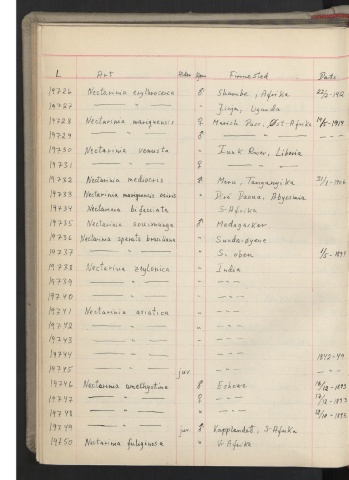 L Art Alder Kjøn Finnested Dato
19726 Nectarinia erythroceria ♂ Shambe, Afrika
19727 — " — " Jinja, Uganda
19728 Nectarinia mariquensis ♀ Øst-Afrika
19729 — " — ♂ — " —
19730 Nectarinia venusta " Junk River, Liberia
19731 — " — ♀ — " —
19732 Nectarinia mediocris ♂ Meru, Tanganyika
19733 Nectarinia mariquensis osiris " Abyssinia
19734 Nectarinia bifasciata " S-Afrika
19735 Nectarinia souimanga ♂ Madagaskar
19736 Nectarinia sperata brasiliana " Sundaøyene
19737 — " — " S. oben 1/5-1891
19738 Nectarinia zeylonica " India
19739 — " — " – – –
19740 — " — " – – –
19741 Nectarinia asiatica " – – –
19742 — " — " – – –
19743 — " — " – – –
19744 — " — – – – 1842-49
19745 — " — juv. – – –
19746 Nectarinia amethystina ♂ 1893
19747 — " — ♀ – – – 1893
19748 — " — " – – – 1893
19749 — " — juv. ♂ Kapplandet, S-Afrika
19750 Nectarinia fuliginosa " V-Afrika